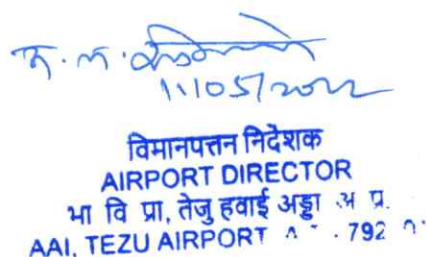 क. ल.
11/05/2022
विमानपत्तन निदेशक
AIRPORT DIRECTOR
भा वि प्रा, तेजु हवाई अड्डा अ प्र.
AAI, TEZU AIRPORT 792